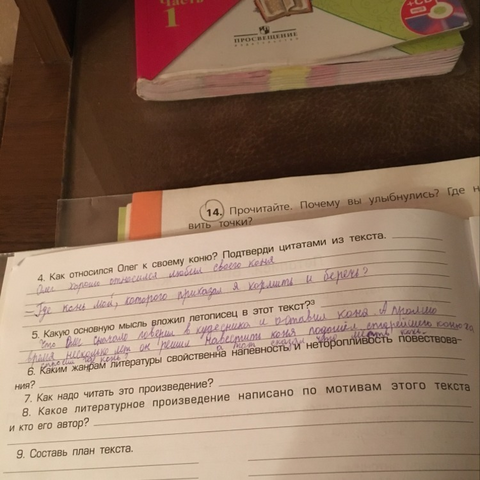 Часть
1
ПРОСВЕЩЕНИЕ
ИЗДАТЕЛЬСТВО
+CD
14. Прочитайте. Почему вы улыбнулись? Где н
вить точки?
4. Как относился Олег к своему коню? Подтверди цитатами из текста.
Олег хорошо относился любил своего коня
– Где конь мой, которого приказал я кормить и беречь?
5. Какую основную мысль вложил летописец в этот текст?³
Что Олег сначало поверил в кудесника и оставил коня а прошло
время несколько лет он решил навестить коня подошёл старейшего конюха
спросил где конь а тот сказал что мёртв конь
6. Каким жанрам литературы свойственна напевность и неторопливость повествова-
ния?
7. Как надо читать это произведение?
8. Какое литературное произведение написано по мотивам этого текста
и кто его автор?
9. Составь план текста.